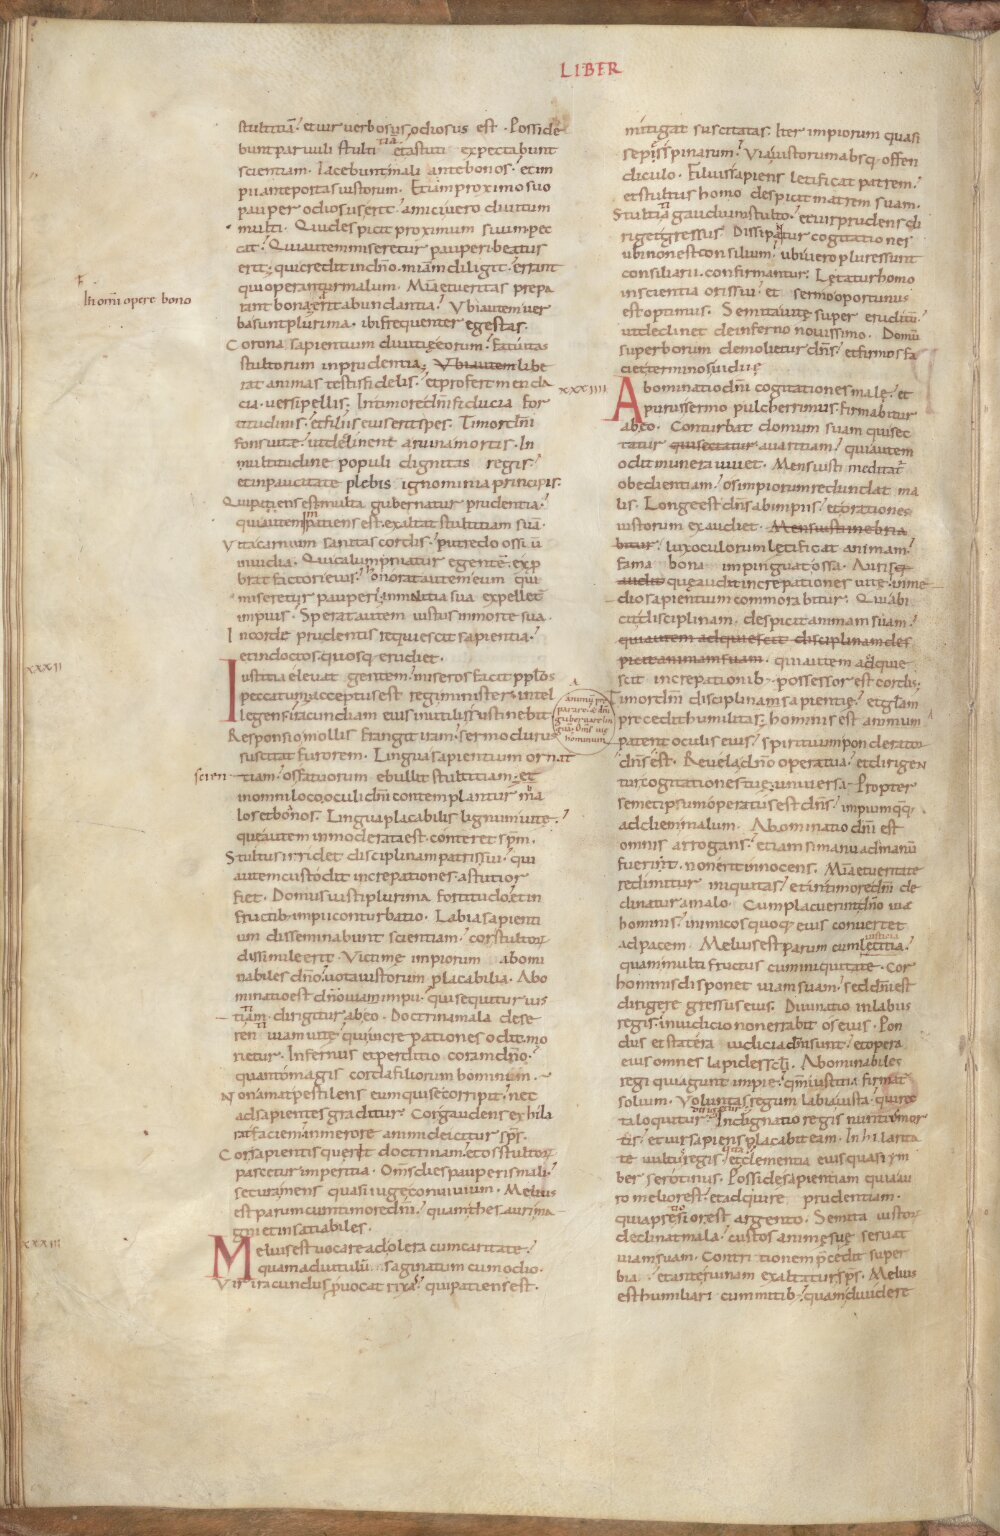 LIBER
stultitiā. et uir uerbosus odiosus est. Posside
bunt paruuli stulti tiā et astuti expectabunt
scientiam. Iacebunt mali ante bonos. et im
pii ante portas iustorum. Etiam proximo suo
pauper odiosus erit. amici uero diuitum
multi. Qui despicit proximum suum pec
cat. Qui autem miseretur pauperi beatus
erit. qui credit in dn̄o. miam diligit. errant
qui operantur malum. Mia et ueritas prepa
In omī opere bono
rant bona. erit abundantia. Vbi autem uer
ba sunt plurima. ibi frequenter egestas.
Corona sapientium diuitię eorum. fatuitas
stultorum inprudentia. Vbi autem libe
rat animas testis fidelis. et profert menda
cia. uersipellis. In timore dn̄i fiducia for
titudinis. et filiis eius erit spes. Timor dn̄i
fons uitę. ut declinent a ruina mortis. In
multitudine populi dignitas regis.
et in paucitate plebis ignominia principis.
Qui patiens est multa gubernatur prudentia.
qui autem im patiens est. exaltat stultitiam suā.
Vita carnium sanitas cordis. putredo ossiū
inuidia. Qui calumpniatur egentē. exp
brat factori eius. honorat autem eum qui
miseretur pauperi. in malitia sua expellet
impius. Sperat autem iustus in morte sua.
In corde prudentis requiescit sapientia.
et indoctos quosq erudiet.
xxxii
Iustitia eleuat gentem. miseros facit pplos
peccatum. acceptus est regi minister intel
legens. iracundiam eius inutilis sustinebit.
Responsio mollis frangit iram. sermo durus
suscitat furorem. Lingua sapientium ornat
scien
tiam. os fatuorum ebullit stultitiam. et
in omni loco oculi dn̄i contemplantur ma
los et bonos. Lingua placabilis lignum uitę.
que autem inmoderata est. conteret spm̄.
Stultus irridet disciplinam patris sui. qui
autem custodit increpationes. astutior
fiet. Domus iusti plurima fortitudo. et in
fructib impii conturbatio. Labia sapienti
um disseminabunt scientiam. cor stultor
dissimile erit. Victimę impiorum abomi
nabiles dn̄o. uota iustorum placabilia. Abo
minatio est dn̄o uiam impii. qui sequitur ius
titiam. dirigitur ab eo. Doctrina mala dese
renti uiam uitę. qui increpationes odit. mo
rietur. Infernus et perditio coram dn̄o.
quanto magis corda filiorum hominum.
Non amat pestilens eum qui se corripit. nec
ad sapientes graditur. Cor gaudens exhila
rat faciem. in merore animi deicitur sps.
Cor sapientis querit doctrinam. et os stultor
pascetur imperitia. Oms dies pauperis mali.
secura mens quasi iuge conuiuium. Melius
est parum cum timore dn̄i. quam thesauri ma
gni et insatiabiles.
xxxiii
Melius est uocare ad olera cum caritate.
quam ad uitulū saginatum cum odio.
Vir iracundus puocat rixas. qui patiens est.
mitigat suscitatas. Iter impiorum quasi
sepis spinarum. Via iustorum absq offen
diculo. Filius sapiens letificat patrem.
et stultus homo despicit matrem suam.
Stultitia gaudium stulto. et uir prudens di
riget gressus. Dissipantur cogitationes
ubi non est consilium. ubi uero plures sunt
consiliarii. confirmantur. Lętatur homo
in scientia oris sui. et sermo oportunus
est optimus. Semita uitę super eruditū.
ut declinet de inferno nouissimo. Domū
superborum demolietur dn̄s. et firmos fa
ciet terminos uiduę
xxxiiii
Abominatio dn̄i cogitationes male. et
purus sermo pulcherrimus. firmabitur
ab eo. Conturbat domum suam qui sec
tatur qui sectatur auaritiam. qui autem
odit munera uiuet. Mens iusti meditat
obedientiam. os impiorum redundat ma
lis. Longe est dn̄s ab impiis. et orationes
iustorum exaudiet. Mens iusti inebria
bitur. lux oculorum letificat animam.
fama bona impinguat ossa. Auris q
audit quę audit increpationes uitę. in me
dio sapientium commorabitur. Qui abi
cit disciplinam. despicit animam suam.
qui autem adquiescit disciplinam des
picit animam suam. qui autem adquie
scit increpationib. possessor est cordis.
A
animū pre
parare. & dn̄i
gubernare lin
guā. Oms uię
hominum
Timor dn̄i disciplina sapientię. et glam
precedit humilitas. hominis est animum
patent oculis eius. spirituum ponderator
dn̄s est. Reuela dn̄o opera tua. et dirigen
tur cogitationes tuę. uniuersa Propter
semetipsum operatus est dn̄s. impium qq
ad diem malum. Abominatio dn̄i est
omnis arrogans. etiam si manu ad manū
fuerint. non erit innocens. Mia et ueritate
redimitur iniquitas. et in timore dn̄i de
clinatur a malo. Cum placuerint dn̄o uię
hominis. inimicos quoq eius conuertet
ad pacem. Melius est parum cum iusticia letitia.
quam multi fructus cum iniquitate. Cor
hominis disponet uiam suam. sed dn̄i est
dirigere gressus eius. Diuinatio in labiis
regis. in iudicio non errabit os eius. Pon
dus et statera iudicia dn̄i sunt. et opera
eius omnes lapides scli. Abominabiles
regi qui agunt impie. qm̄ iustitia firmat
solium. Voluntas regum labia iusta. qui rec
ta loquitur dirigetur. Indignatio regis nuntii mor
tis. et uir sapiens placabit eam. In hilarita
te uultus regis uita. et clementia eius quasi ym
ber serotinus. Posside sapientiam quia au
ro melior est. et adquire prudentiam.
quia pretiosior est argento. Semita iustor
declinat mala. custos animę suę seruat
uiam suam. Contritionem pcedit super
bia et ante ruinam exaltatur sps. Melius
est humiliari cum mitib. quam diuidere